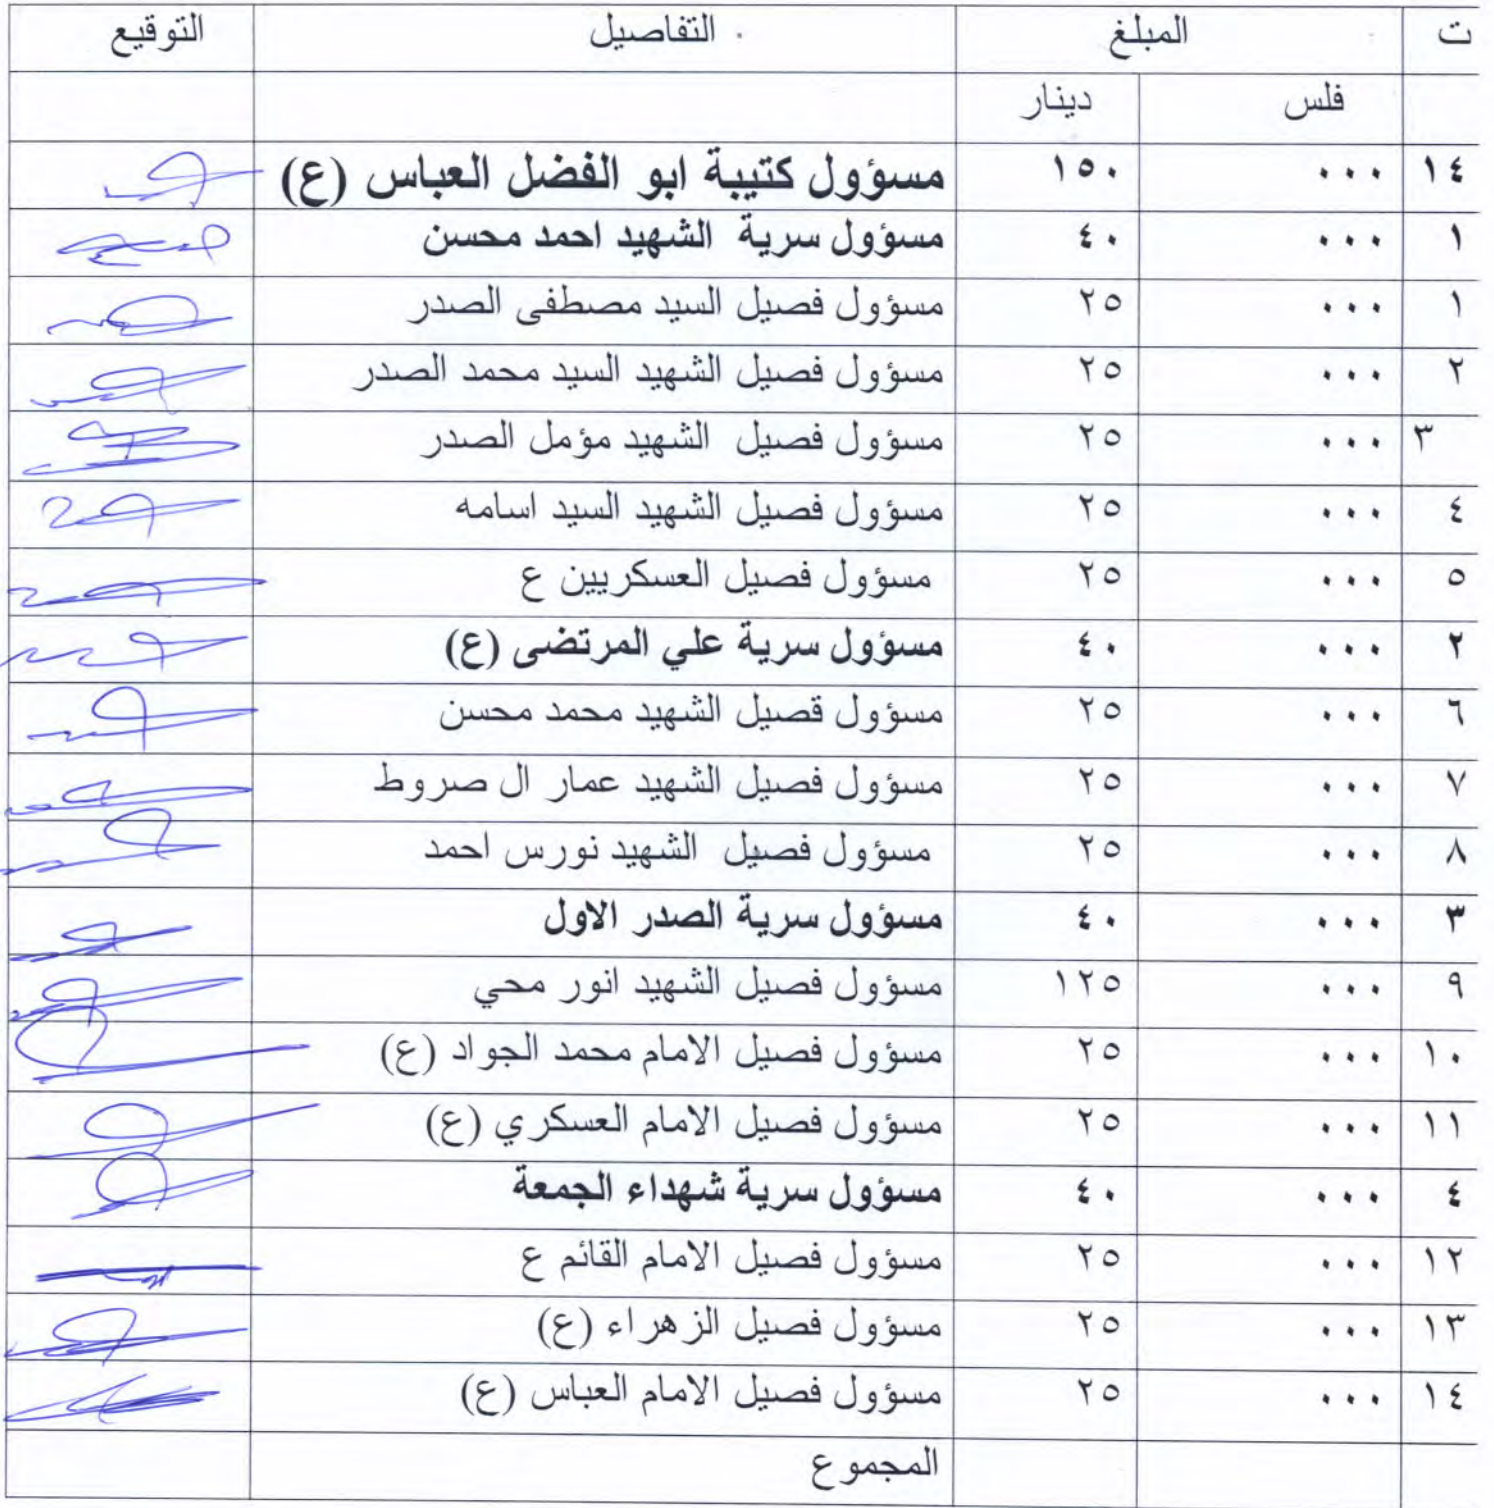 ت المبلغ التفاصيل التوقيع
فلس دينار
١٤ ٠٠٠ ١٥٠ مسؤول كتيبة ابو الفضل العباس (ع)
١ ٠٠٠ ٤٠ مسؤول سرية الشهيد احمد محسن
١ ٠٠٠ ٢٥ مسؤول فصيل السيد مصطفى الصدر
٢ ٠٠٠ ٢٥ مسؤول فصيل الشهيد السيد محمد الصدر
٣ ٠٠٠ ٢٥ مسؤول فصيل الشهيد مؤمل الصدر
٤ ٠٠٠ ٢٥ مسؤول فصيل الشهيد السيد اسامه
٥ ٠٠٠ ٢٥ مسؤول فصيل العسكريين ع
٢ ٠٠٠ ٤٠ مسؤول سرية علي المرتضى (ع)
٦ ٠٠٠ ٢٥ مسؤول قصيل الشهيد محمد محسن
٧ ٠٠٠ ٢٥ مسؤول فصيل الشهيد عمار ال صروط
٨ ٠٠٠ ٢٥ مسؤول فصيل الشهيد نورس احمد
٣ ٠٠٠ ٤٠ مسؤول سرية الصدر الاول
٩ ٠٠٠ ١٢٥ مسؤول فصيل الشهيد انور محي
١٠ ٠٠٠ ٢٥ مسؤول فصيل الامام محمد الجواد (ع)
١١ ٠٠٠ ٢٥ مسؤول فصيل الامام العسكري (ع)
٤ ٠٠٠ ٤٠ مسؤول سرية شهداء الجمعة
١٢ ٠٠٠ ٢٥ مسؤول فصيل الامام القائم ع
١٣ ٠٠٠ ٢٥ مسؤول فصيل الزهراء (ع)
١٤ ٠٠٠ ٢٥ مسؤول فصيل الامام العباس (ع)
المجموع